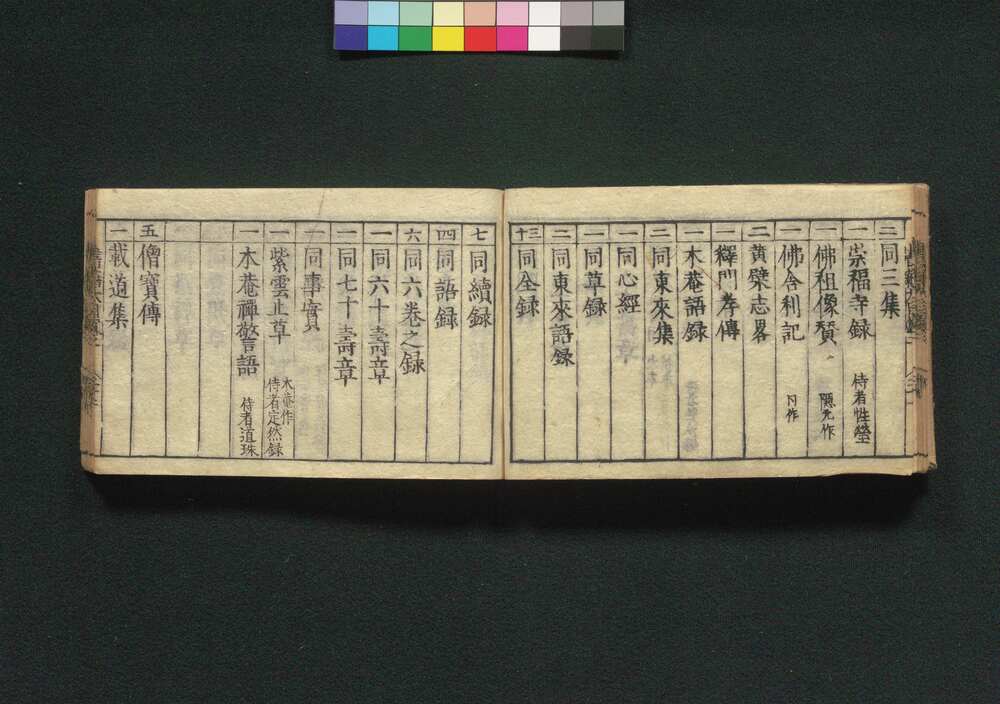 二 同三集
一 崇福寺録 侍者性瑩
一 佛祖像賛 隠元作
一 佛舎利記 同作
二 黄檗志畧
一 釋門孝傳
一 木菴語録
二 同東來集
一 同心經
一 同草録
二 同東來語録
十三 同全録
七 同續録
四 同語録
六 同六巻之録
一 同六十壽章
一 同七十壽章
一 同事實
一 紫雲止草 木菴作
侍者定然録
一 木菴禪警語 侍者道珠
五 僧寶傳
一 載道集